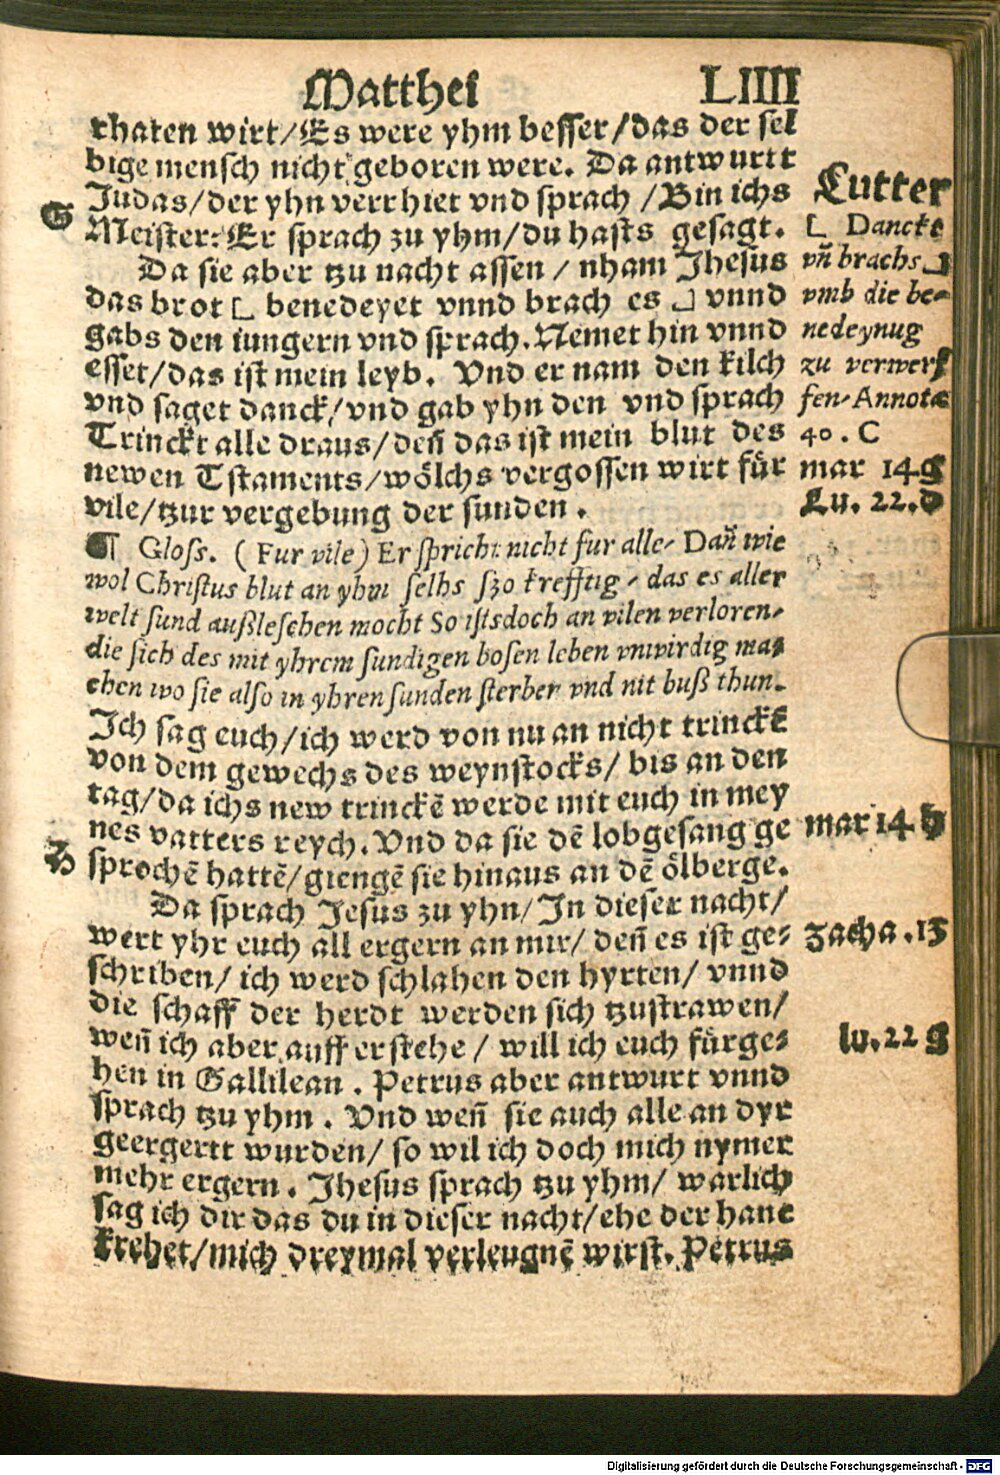 Matthei LIIII
rhaten wirt/Es were yhm besser/das der sel
bige mensch nicht geboren were. Da antwurtt
Judas/der yhn verrhiet vnd sprach/Bin ichs
G
Meister: Er sprach zu yhm/du hasts gesagt.
Da sie aber tzu nacht assen/nham Jhesus
das brot [ benedeyet vnnd brach es ] vnnd
gabs den iungern vnd sprach. Nemet hin vnnd
esset/das ist mein leyb. Vnd er nam den kilch
vnd saget danck/vnd gab yhn den vnd sprach
Trinckt alle draus/deñ das ist mein blut des
newen Tstaments/wölchs vergossen wirt für
vile/tzur vergebung der sunden.
Lutter
[ Danckt
vñ brachs ]
vmb die be-
nedeynug
zu verwerf
fen. Annota
40. C
mar 14 g
Lu. 22. d
¶ Gloss. (Fur vile) Er spricht nicht fur alle. Dañ wie
wol Christus blut an yhm selbs szo krefftig, das es aller
welt sund außleschen mocht So istsdoch an vilen verloren,
die sich des mit yhrem sundigen bosen leben vnwirdig ma-
chen wo sie also in yhren sunden sterben vnd nit buß thun.
Ich sag euch/ich werd von nu an nicht trinckē
von dem gewechs des weynstocks/ bis an den
tag/da ichs new trinckē werde mit euch in mey
nes vatters reych. Vnd da sie dē lobgesang ge
mar 14 h
sprochē hattē/giengē sie hinaus an dē ölberge.
Da sprach Jesus zu yhn/In dieser nacht/
wert yhr euch all ergern an mir/ deñ es ist ge-
zacha. 13
schriben/ ich werd schlahen den hyrten/ vnnd
die schaff der herdt werden sich tzustrawen/
weñ ich aber auff erstehe/ will ich euch fürge-
lu. 22 g
hen in Gallilean. Petrus aber antwurt vnnd
sprach tzu yhm. Vnd weñ sie auch alle an dyr
geergertt wurden/ so wil ich doch mich nymer
mehr ergern. Jhesus sprach tzu yhm/ warlich
sag ich dir das du in dieser nacht/ehe der hane
krehet/mich dreymal verleugnē wirst. Petrus
Digitalisierung gefördert durch die Deutsche Forschungsgemeinschaft - DFG